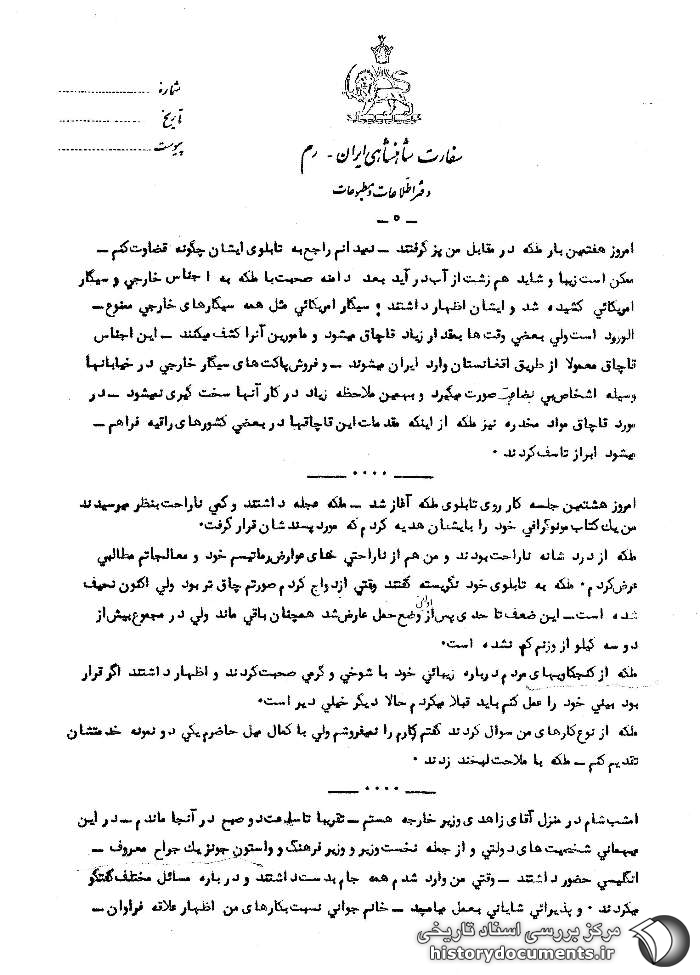 شماره
تاریخ
پیوست
سفارت شاهنشاهی ایران - رم
دفتر اطلاعات و مطبوعات
- ۵ -
امروز هفتمین بار ملکه در مقابل من پز گرفتند - نمیدانم راجع به تابلوی ایشان چگونه قضاوت کنم -
ممکن است زیبا و شاید هم زشت از آب در آید بعد دامنه صحبت با ملکه به اجناس خارجی و سیگار
امریکائی کشیده شد و ایشان اظهار داشتند ؛ سیگار امریکائی مثل همه سیگارهای خارجی ممنوع -
الورود است ولی بعضی وقت ها بمقدار زیاد قاچاق میشود و مامورین آنرا کشف میکنند - این اجناس
قاچاق معمولا از طریق افغانستان وارد ایران میشوند - و فروش پاکت های سیگار خارجی در خیابانها
وسیله اشخاص بی بضاعت صورت میگیرد و بهمین ملاحظه زیاد در کار آنها سخت گیری نمیشود - در
مورد قاچاق مواد مخدره نیز ملکه از اینکه مقدمات این قاچاقها در بعضی کشورهای راقیه فراهم -
میشود ابراز تاسف کردند .
امروز هشتمین جلسه کار روی تابلوی ملکه آغاز شد - ملکه عجله داشتند و کمی ناراحت بنظر میرسیدند
من یک کتاب مونوگرافی خود را بایشان هدیه کردم که مورد پسندشان قرار گرفت.
ملکه از درد شانه ناراحت بودند و من هم از ناراحتی های عوارض رماتیسم خود و معالجاتم مطالبی
عرض کردم . ملکه به تابلوی خود نگریسته گفتند وقتی ازدواج کردم صورتم چاق تر بود ولی اکنون نحیف
شده است - این ضعف تا حدی پس از اولین وضع حمل عارض شد همچنان باقی ماند ولی در مجموع بیش از
دو سه کیلو از وزنم کم نشده است.
ملکه از کنجکاویهای مردم درباره زیبائی خود با شوخی و گرمی صحبت کردند و اظهار داشتند اگر قرار
بود بینی خود را عمل کنم باید قبلا میکردم حالا دیگر خیلی دیر است.
ملکه از نوع کارهای من سوال کردند گفتم کارم را نمیفروشم ولی با کمال میل حاضرم یکی دو نمونه خدمتشان
تقدیم کنم - ملکه با ملاحت لبخند زدند .
امشب شام در منزل آقای زاهدی وزیر خارجه هستم - تقریبا تا ساعت دو صبح در آنجا ماندم - در این
میهمانی شخصیت های دولتی و از جمله نخست وزیر و وزیر فرهنگ و واستون جونز یک جراح معروف -
انگلیسی حضور داشتند - وقتی من وارد شدم همه جام بدست داشتند و درباره مسائل مختلف گفتگو
میکردند . و پذیرائی شایانی بعمل میامد - خانم جوانی نسبت بکارهای من اظهار علاقه فراوان -
مرکز بررسی اسناد تاریخی
historydocuments.ir